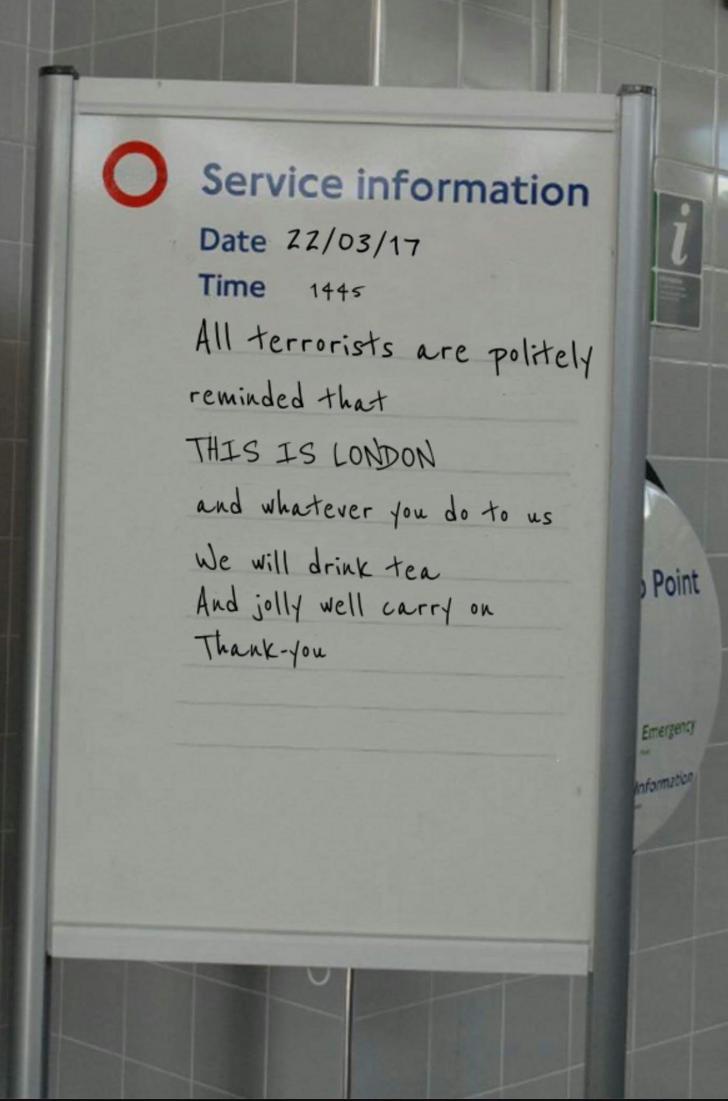 Service information
Date 22/03/17
Time 1445
All terrorists are politely
reminded that
THIS IS LONDON
and whatever you do to us
We will drink tea
And jolly well carry on
Thank-you
i
Point
Emergency
Information